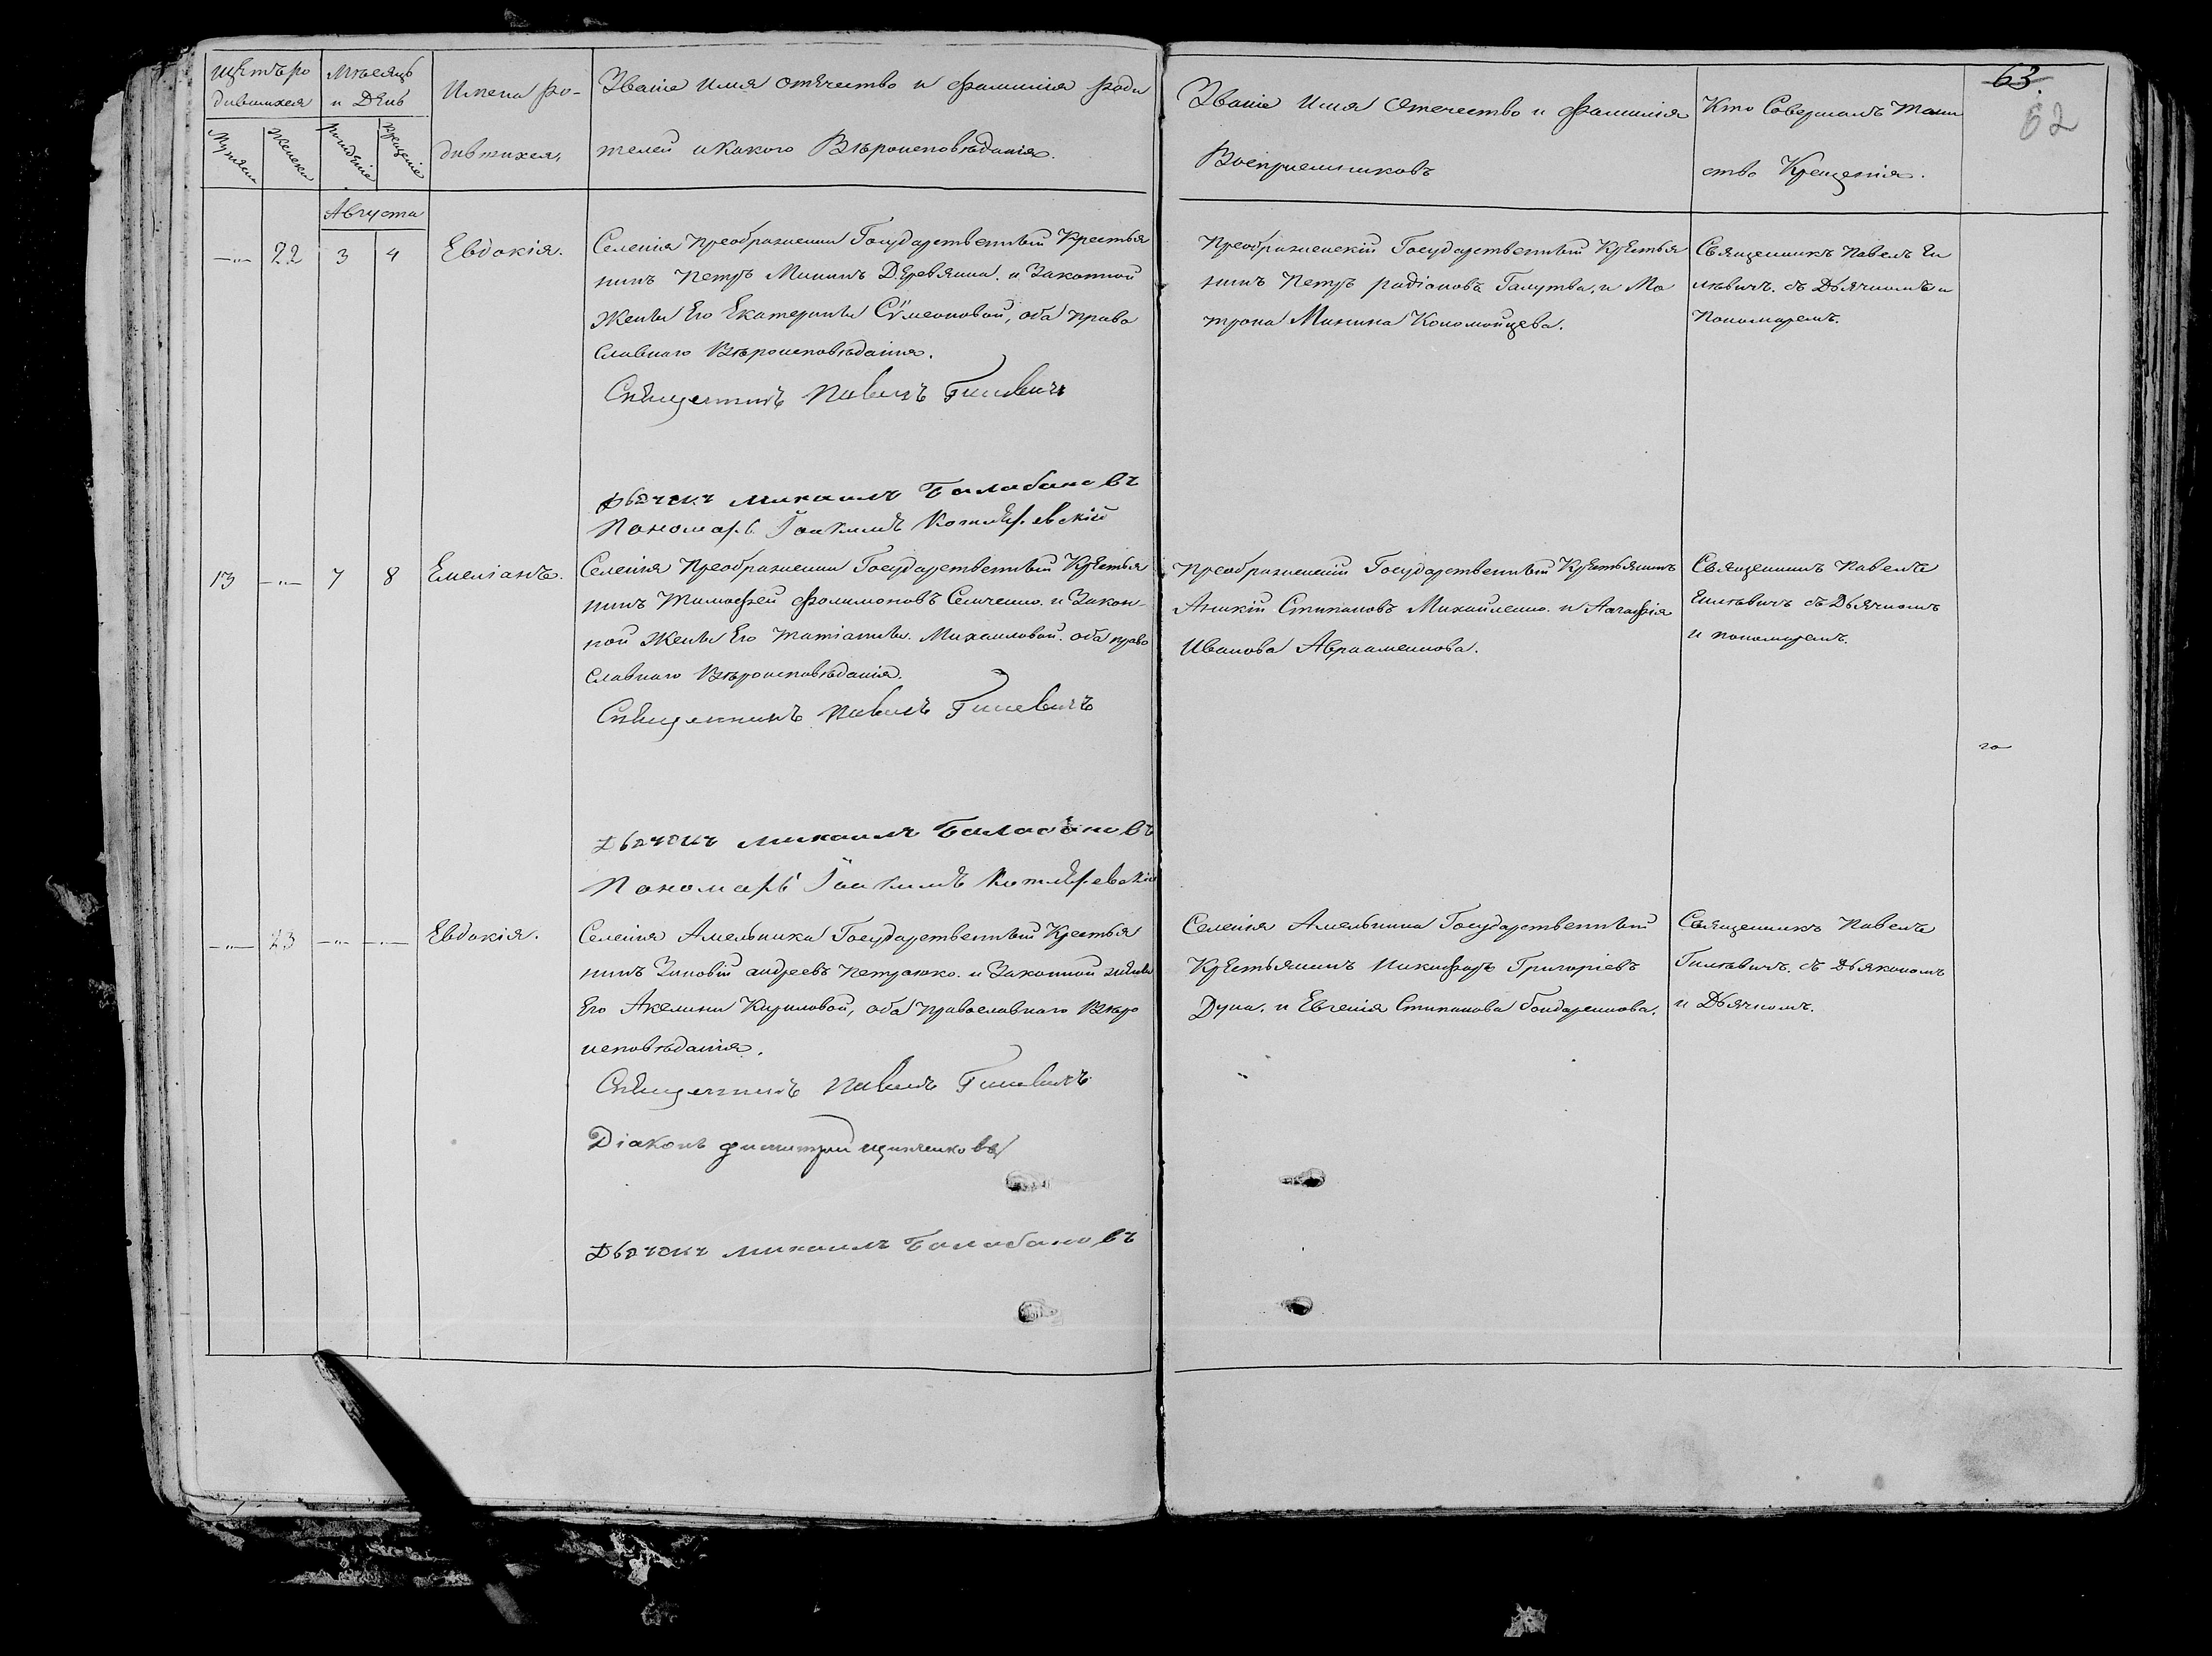 63.
62
Щетъ ро
дившихся
Мужеска
Женска
Мѣсяцъ
и День
рождѣніе
крещеніе
Имена ро-
дившихся,
Званіе имя отечество и фамилія роди
телей и какого Вѣроисповѣданія.
Званіе Имя Отечество и Фамилія
Воспріемниковъ
Кто Совершалъ Таин
ство Крещенія.
Августа
—„— 22 3 4
Евдокія.
Селенія Преображенки Государственный Крестья
нинъ Петръ Мининъ Деревянка. и Законной
Жены Его Екатерины Сѷмеоновой, оба право
славнаго Вѣроисповѣданія.
Священникъ Павелъ Гилевичъ
Дьячокъ Михаилъ Балабановъ
Пономарь Іоакимъ Котляревскій
Преображенскій Государственный Крестья
нинъ Петръ радіоновъ Галушка, и Ма
трона Минина Коломойцева.
Священникъ Павелъ Ги
лѣвичъ. съ Дьячкомъ и
Пономаремъ.
13 —„— 7 8
Емеліанъ.
Селенія Преображенки Государственный Крестья
нинъ Тимофей Филимоновъ Семченко. и Закон-
ной Жены Его Татіаны. Михаиловой. оба право
славнаго Вѣроисповѣданія.
Священникъ Павелъ Гилевичъ
Дьячокъ Михаилъ Балабановъ
Пономарь Іоакимъ Котляревскій
Преображенскій Государственный Крестьянинъ
Аникій Стипановъ Михайленко. и Агафія
Иванова Авраменкова.
Священникъ Павелъ
Гилѣвичъ съ Дьячкомъ
и пономаремъ.
го
—„— 23 —„— —„—
Евдокія.
Селенія Амельника Государственный Крестья
нинъ Зиновій андреевъ Петренко. и Законной жены
Его Акелины Кириловой, оба православнаго Вѣро
исповѣданія.
Священникъ Павелъ Гилевичъ
Діаконъ Димитрій
Дьячокъ Михаилъ Балабановъ
Селенія Амельника Государственный
Крестьянинъ Никифоръ Григоріевъ
и Евгенія Стипанова бондаренкова.
Священникъ Павелъ
Гилѣвичъ. съ Дьякономъ
и Дьячкомъ.